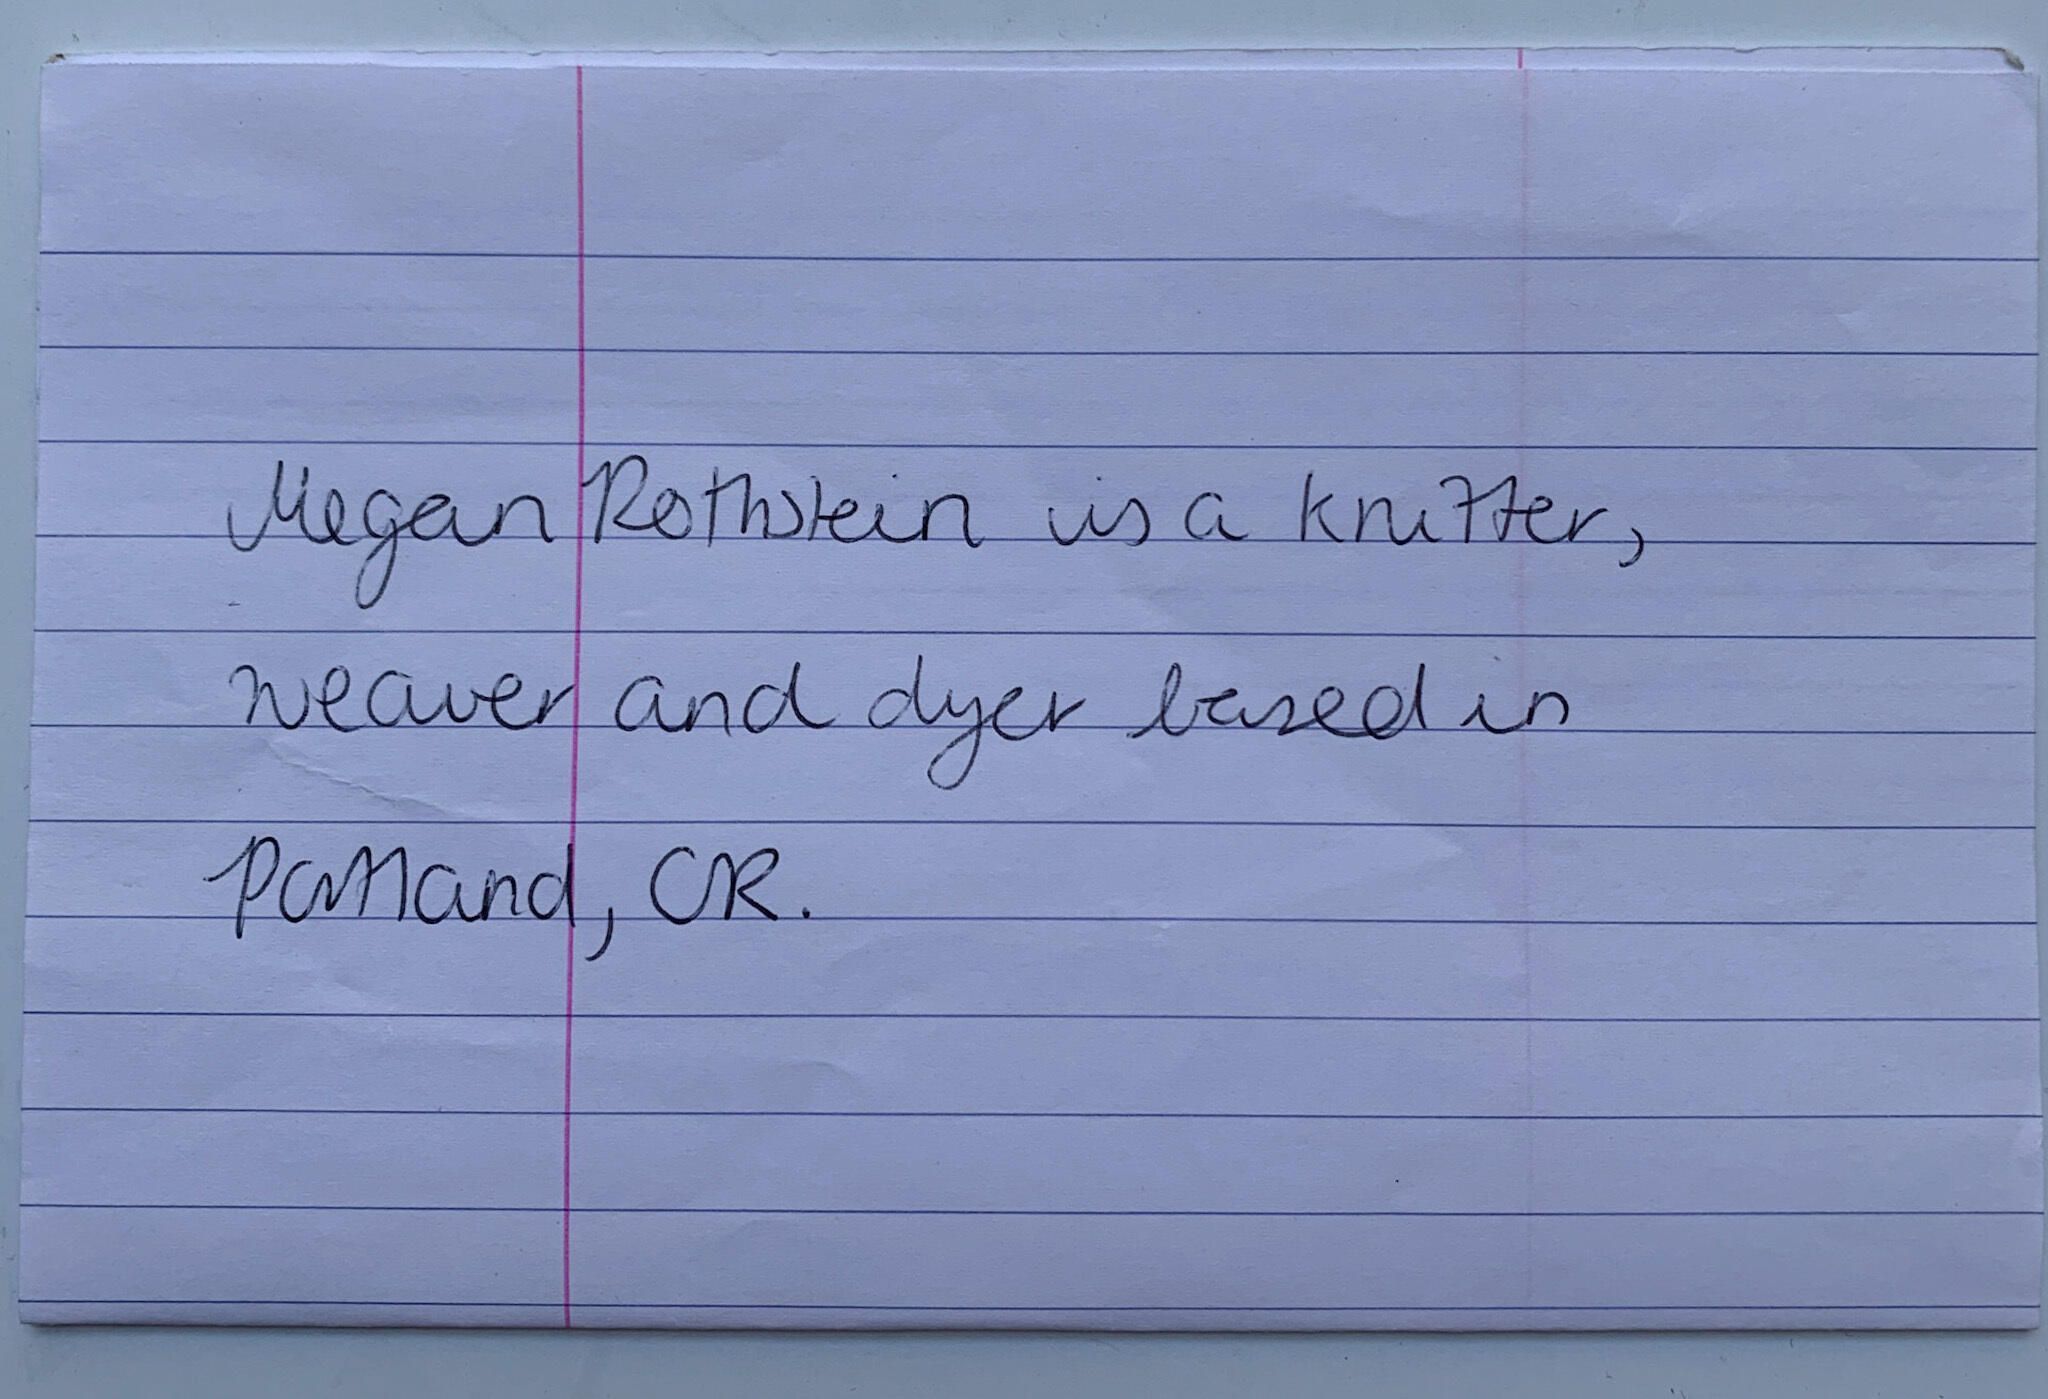 Megan Rothstein is a knitter,
weaver and dyer based in
Portland, OR.